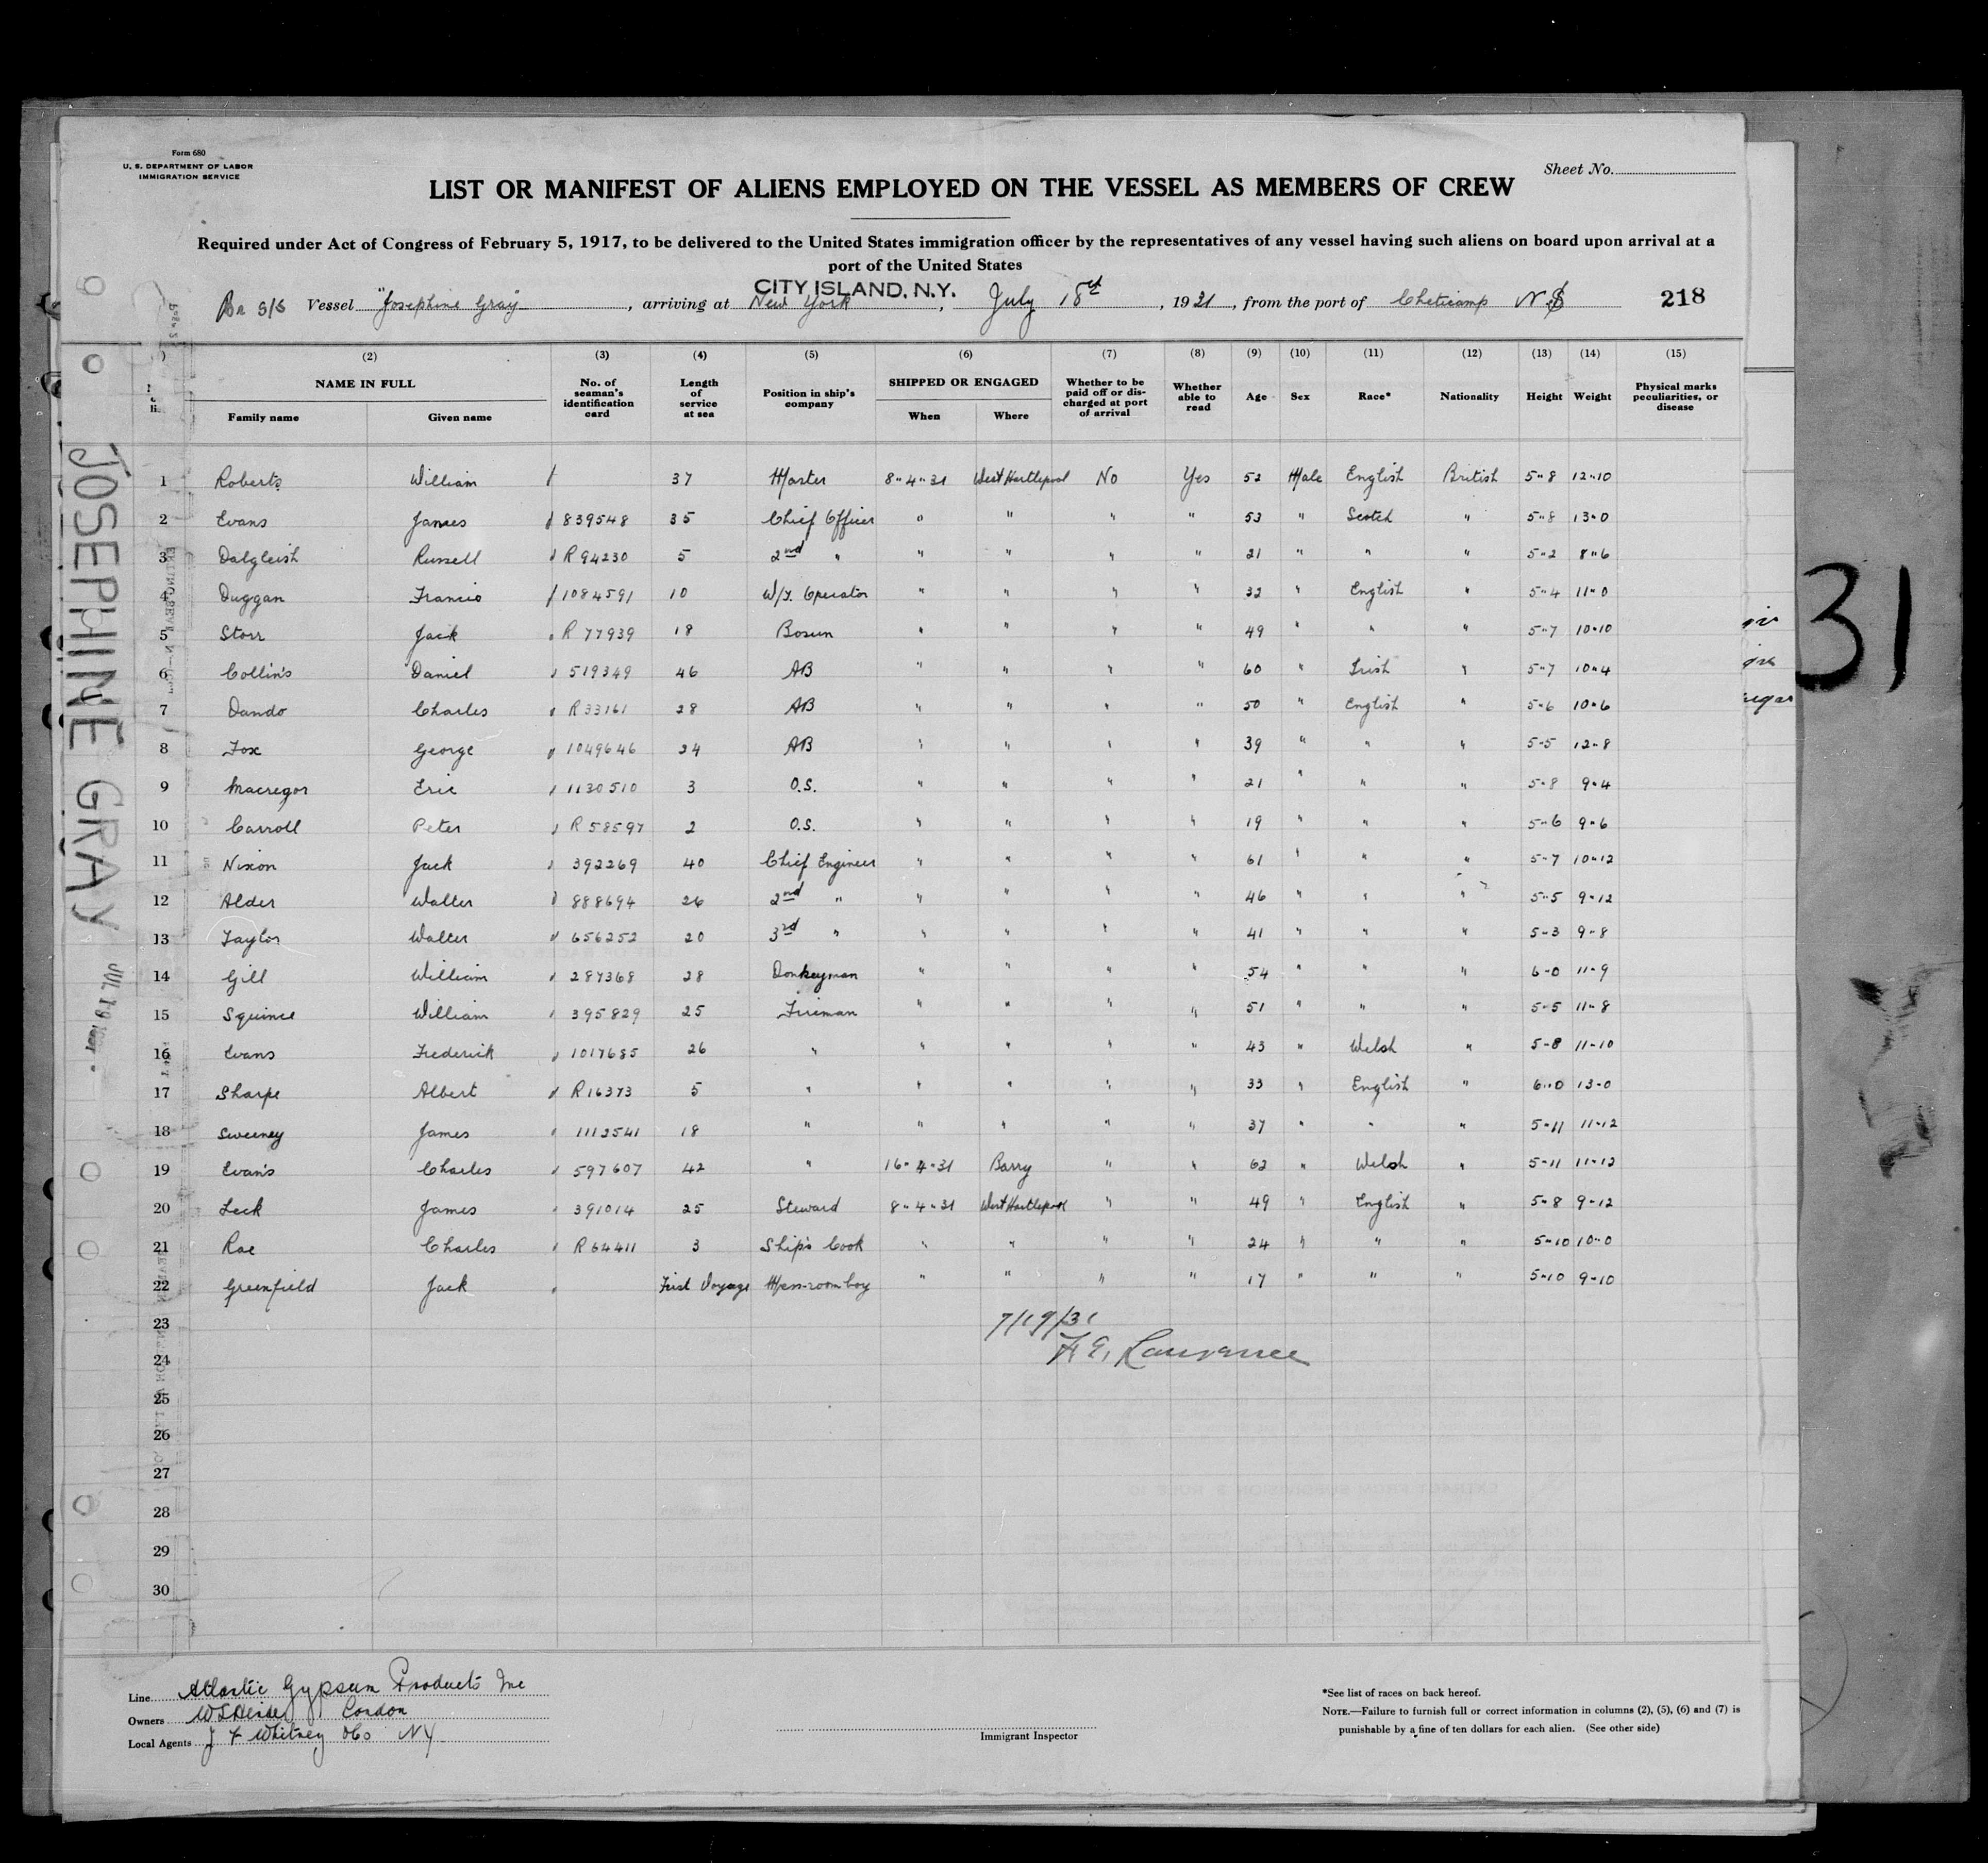 Form 680
U. S. DEPARTMENT OF LABOR
IMMIGRATION SERVICE
Sheet No.
LIST OR MANIFEST OF ALIENS EMPLOYED ON THE VESSEL AS MEMBERS OF CREW
Required under Act of Congress of February 5, 1917, to be delivered to the United States immigration officer by the representatives of any vessel having such aliens on board upon arrival at a
port of the United States
CITY ISLAND, N.Y.
Br S/S Vessel "Josephine Gray", arriving at New York, July 18th, 1931, from the port of Cheticamp N.S 218
(2) (3) (4) (5) (6) (7) (8) (9) (10) (11) (12) (13) (14) (15)
NAME IN FULL No. of seaman's identification card Length of service at sea Position in ship's company SHIPPED OR ENGAGED Whether to be paid off or discharged at port of arrival Whether able to read Age Sex Race* Nationality Height Weight Physical marks peculiarities, or disease
Family name Given name When Where
1 Roberts William 37 Master 8"4"31 West Hartlepool No Yes 52 Male English British 5"8 12"10
2 Evans James 839548 35 Chief Officer " " " " 53 " Scotch " 5"8 13"0
3 Dalgleish Russell R 94230 5 2nd " " " " " 21 " " " 5"2 8"6
4 Duggan Francis 1084591 10 W/T. Operator " " " " 32 " English " 5"4 11"0
5 Storr Jack R 77939 18 Bosun " " " " 49 " " " 5"7 10"10
6 Collin's Daniel 519349 46 AB " " " " 60 " Irish " 5"7 10"4
7 Dando Charles R33161 28 AB " " " " 50 " English " 5"6 10"6
8 Fox George 1049646 24 AB " " " " 39 " " " 5"5 12"8
9 Macregor Eric 1130510 3 O.S. " " " " 21 " " " 5"8 9"4
10 Carroll Peter R 58597 2 O.S. " " " " 19 " " " 5"6 9"6
11 Nixon Jack 392269 40 Chief Engineer " " " " 61 " " " 5"7 10"12
12 Alder Walter 888694 26 2nd " " " " " 46 " " " 5"5 9"12
13 Taylor Walter 656252 20 3rd " " " " " 41 " " " 5"3 9"8
14 Gill William 287368 28 Donkeyman " " " " 54 " " " 6"0 11"9
15 Squince William 395829 25 Fireman " " " " 51 " " " 5"5 11"8
16 Evans Frederick 1017685 26 " " " " " 43 " Welsh " 5"8 11"10
17 Sharpe Albert R16373 5 " " " " " 33 " English " 6"0 13"0
18 Sweeney James 1112541 18 " " " " " 37 " " " 5"11 11"12
19 Evan's Charles 597607 42 " 16"4"31 Barry " " 62 " Welsh " 5"11 11"12
20 Leck James 391014 25 Steward 8"4"31 West Hartlepool " " 49 " English " 5"8 9"12
21 Rae Charles R64411 3 Ship's Cook " " " " 24 " " " 5"10 10"0
22 Greenfield Jack First Voyage Mess-room boy " " " " 17 " " " 5"10 9"10
23
24
25
26
27
28
29
30
7/19/31
JOSEPHINE GRAY
JUL 19
31
Line Atlantic Gypsum Products Inc
Owners London
Local Agents J F Whitney & Co NY
Immigrant Inspector
*See list of races on back hereof.
NOTE.—Failure to furnish full or correct information in columns (2), (5), (6) and (7) is
punishable by a fine of ten dollars for each alien. (See other side)